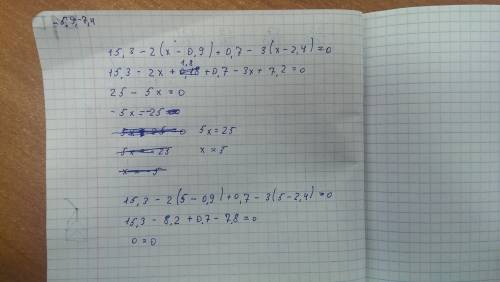 15,3 - 2(x - 0,9) + 0,7 - 3(x - 2,4) = 0
15,3 - 2x + 1,8 + 0,7 - 3x + 7,2 = 0
25 - 5x = 0
-5x = -25
5x = 25
x = 5
15,3 - 2(5 - 0,9) + 0,7 - 3(5 - 2,4) = 0
15,3 - 8,2 + 0,7 - 7,8 = 0
0 = 0